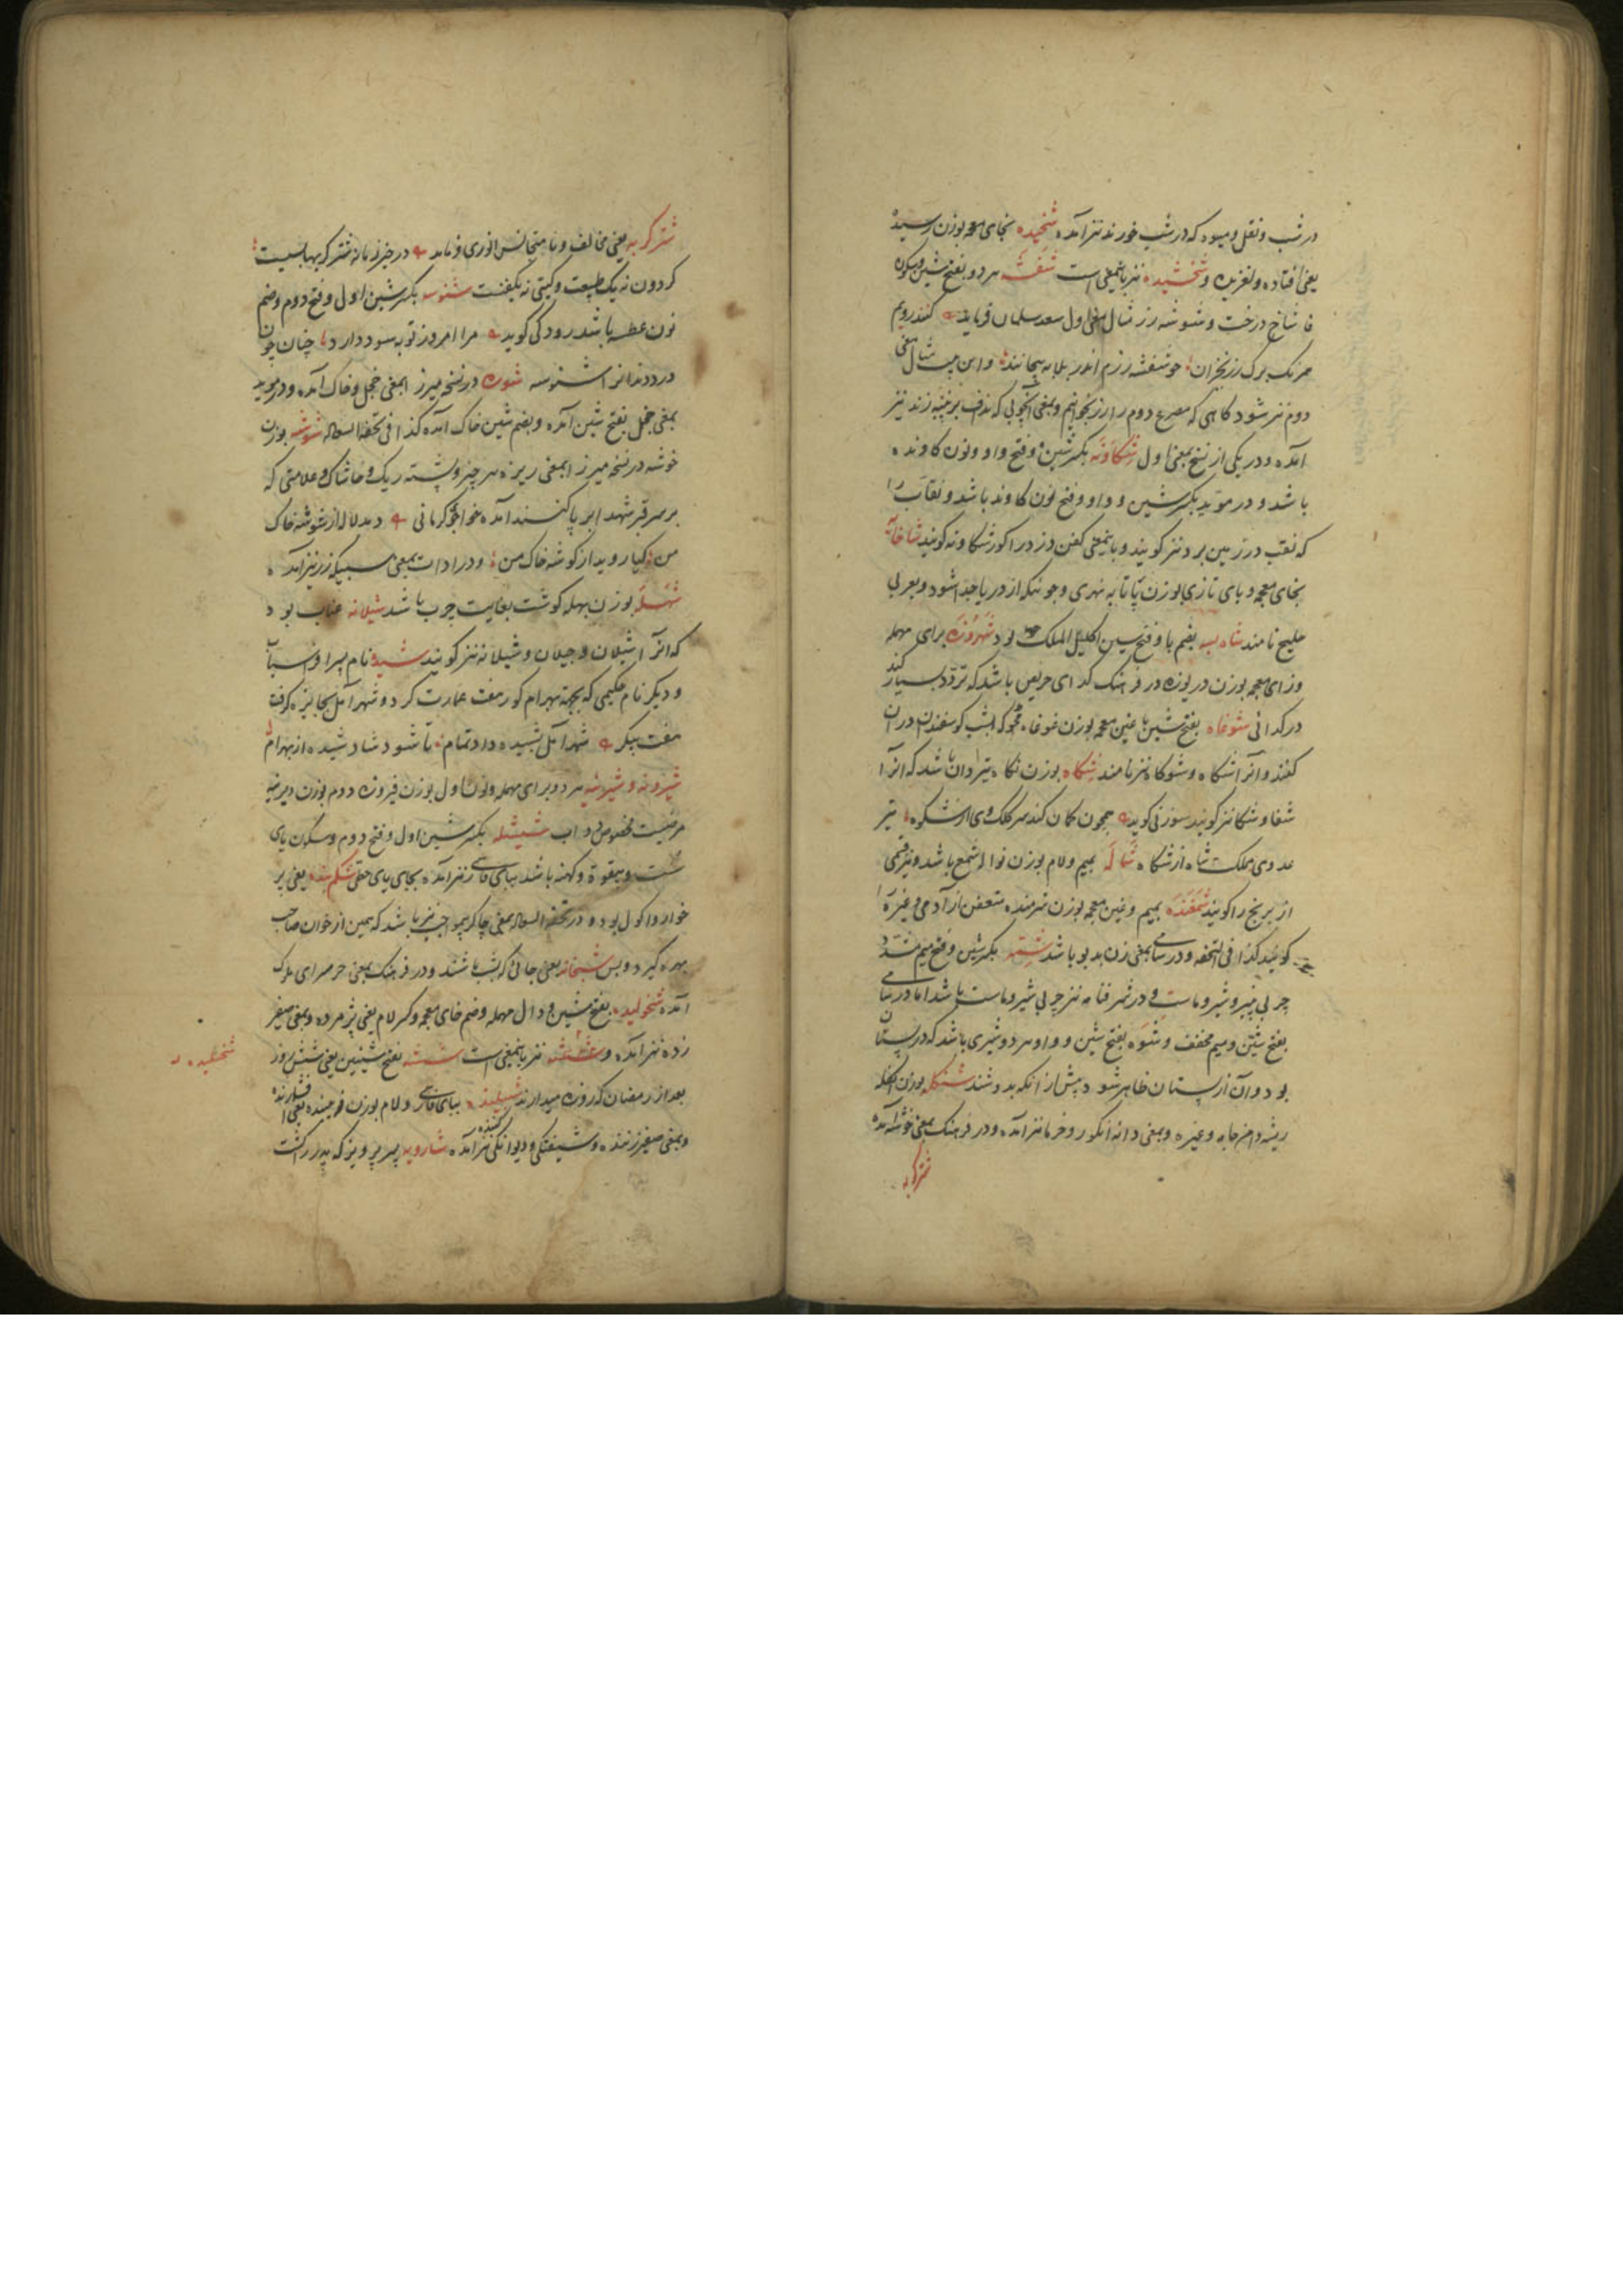 در شب و نقل و میوه که در شب خورند نیز آمده شخیده بخای معجمه بوزن رسیده
یعنی افتاده و لغزیده و شخشیده نیز باینمعنی است شفشه هر دو بفتح شین و سکون
فا شاخ درخت و شوشه زر مثال معنی اول سعد سلمان فرماید کنند رویم
همرنگ برک رز بخزان چو شفشه رزم اندر بلا به پیچانند و این بیت مثال معنی
دوم نیز شود کاهی که مصرع دوم را زر بخوانیم و بمعنی آنچوبی که نداف بر پنبه زند نیز
آمده و در یکی از نسخ بمعنی اول شکاونه بکسر شین و فتح واو و نون کاونده
باشد و در موید بکسر شین و واو و فتح نون کاوند باشد و نقاب را
که نقب در زمین برد نیز کویند و باینمعنی کفن دزد را کورشکاونه کویند شاخابه
بخای معجمه و بای تازی بوزن پاتابه نهری و جوئیکه از دریا جدا شود و بعربی
خلیج نامند شاه بسه بضم با و فتح سین اکلیل الملک بود شهروزه برای مهمله
و زای معجمه بوزن دریوزه در فرهنک کدای حریص باشد که تردد بسیار کند
در کدائی شوغاه بفتح شین با غین معجمه بوزن غوغاه محوکه شب کوسفندان در آن
کنند و آنرا شکاه و شوکاه نیز نامند شکاه بوزن نکاه تیردان باشد که آنرا
شغا و شکا نیز کویند سوزنی کوید همچون کمان کند سر کلک وی از شکوه تیر
عدوی مملکت شاه از شکاه شماله بمیم و لام بوزن نواله شمع باشد و نیز قسمی
از برنج را کویند شمغنده بمیم و غین معجمه بوزن شرمنده متعفن از آدمی و غیره را
کویند کذا فی التحفه و در سامی بمعنی زن بدبو باشد شمه بکسر شین و فتح میم مشدد
چربی پنیر و شیر و ماست و در شرفنامه نیز چربی شیر و ماست باشد اما در سامی
بفتح شین و میم مخفف و شوه بفتح شین و واو هر دو شیری باشد که در پستان
بود و آن از پستان ظاهر شود پیش از آنکه بدوشند شنکله بوزن
ریشه دامن جامه و غیره و بمعنی دانه انکور و خرما نیز آمده و در فرهنک بمعنی خوشه آمده
شترکربه
شترکربه یعنی مخالف و نامتجانس انوری فرماید در حیز زمانه شترکربها بسیست
کردون نه یک طبیعت و کیتی نه یکفنست شنوسه بکسر شین اول و فتح دوم و ضم
نون عطسه باشد رودکی کوید مرا امروز توبه سود دارد چنان چون
دردمندانرا شنوسه شوره در نسخه میرزا بمعنی خجل و خاک آمده و در موید
بمعنی خجل بفتح شین آمده و بضم شین خاک آمده کذا فی تحفة السعاده شوشه بوزن
خوشه در نسخه میرزا بمعنی ریزه هر چیز و پشته ریک و خاشاک و علامتی که
بر سر قبر شهدا بر پا کنند آمده خواجو کرمانی دمد لاله از شوشه خاک
من کیا روید از کوشه خاک من و در ادات بمعنی سبیکه زر نیز آمده
شهله بوزن بهله کوشت بغایت چرب باشد شیلانه عناب بود
که آنرا شیلان و جیلان و شیلانه نیز کویند شیده نام پسر افراسیاب
و دیکر نام حکیمی که بجهة بهرام کور هفت عمارت کرد و شهر آمل بجایزه کرفت
هفت پیکر شهر آمل بشیده داد تمام تا شود شاد شیده از بهرام
شیرونه و شیرینه هر دو برای مهمله و نون اول بوزن فیروزه دوم بوزن دیرینه
مرضیست مخصوص دواب شیشله بکسر شین اول و فتح دوم و سکون یای
سست و بیقوة و کهنه باشد ببای فارسی نیز آمده بجای یای حطی شکم بنده یعنی پر
خوار و اکول بود و در تحفة السعاده بمعنی چاکر بیمواجب نیز باشد که همین از خوان صاحب
بهره کیرد و بس شبخانه یعنی جائی که شب باشند و در فرهنک بمعنی حرمسرای ملوک
آمده شخولیده بفتح شین و دال مهمله و ضم خای معجمه و کسر لام یعنی پژمرده و بمعنی صفیر
زده نیز آمده و نیز باینمعنی است ششه بفتح شینین یعنی شش روز
بعد از رمضان که روزه میدارند شپلنده ببای فارسی و لام بوزن فریبنده بمعنی افشارنده
و بمعنی صفیر زننده و شیفتکی و دیوانکی کننده نیز آمده شارویه پسر پرویز که پدر را کشت